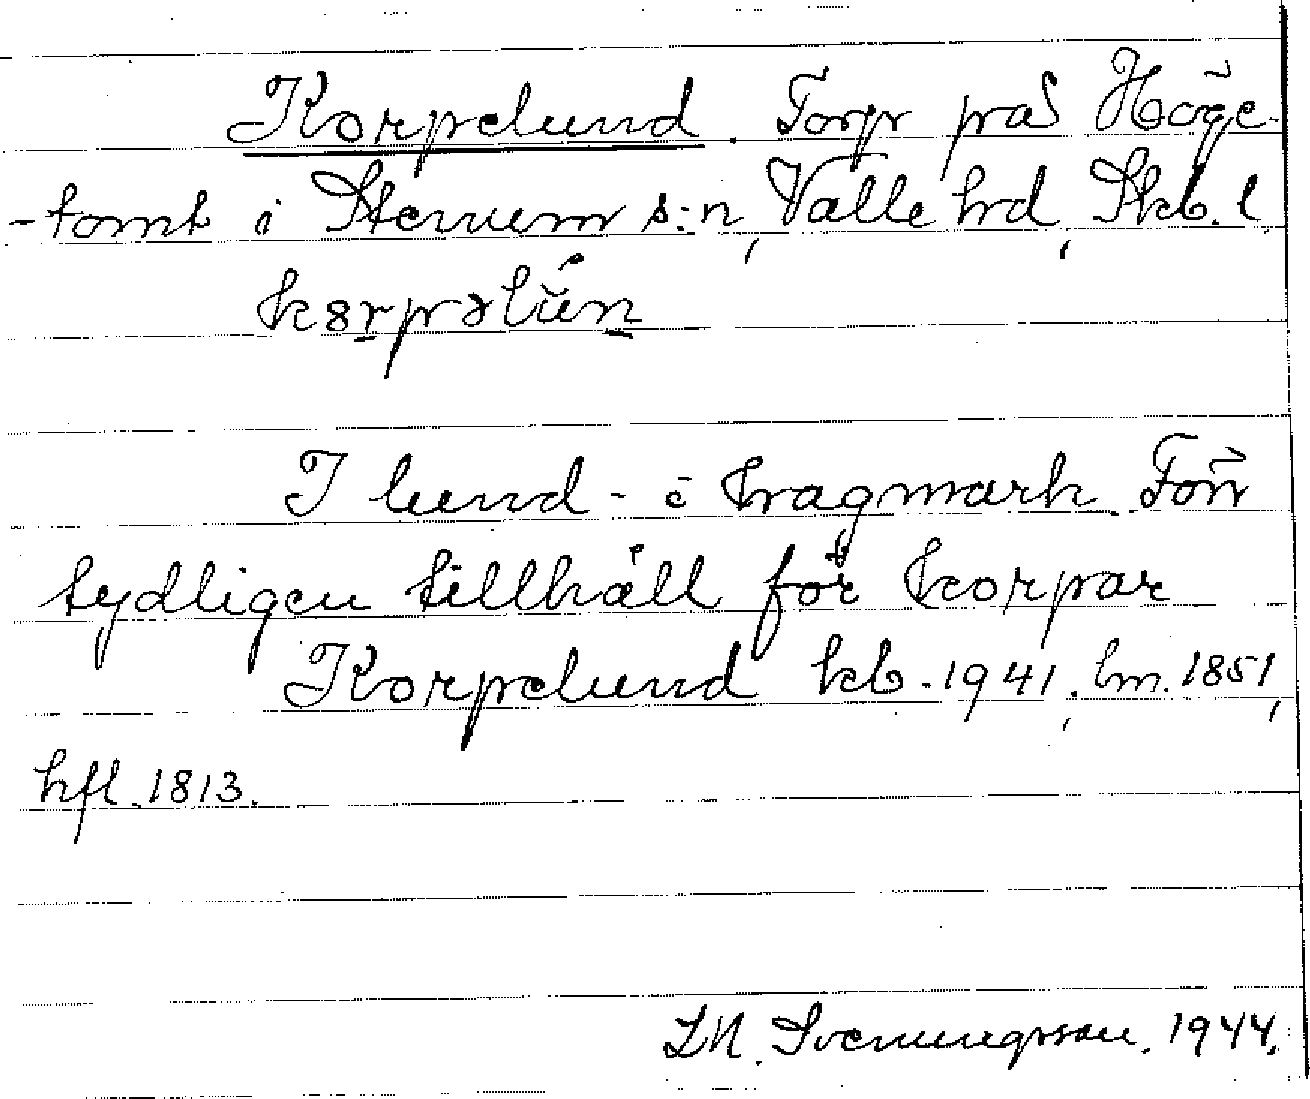 Korpelund. Torp på Höge-
-tomt i Stenum s:n, Valle hd, Skb. l.
I lund - i hagmark. Förr
tydligen tillhåll för korpar
Korpelund kb. 1941, lm. 1851,
hfl. 1813.
Svenungsson. 1944.